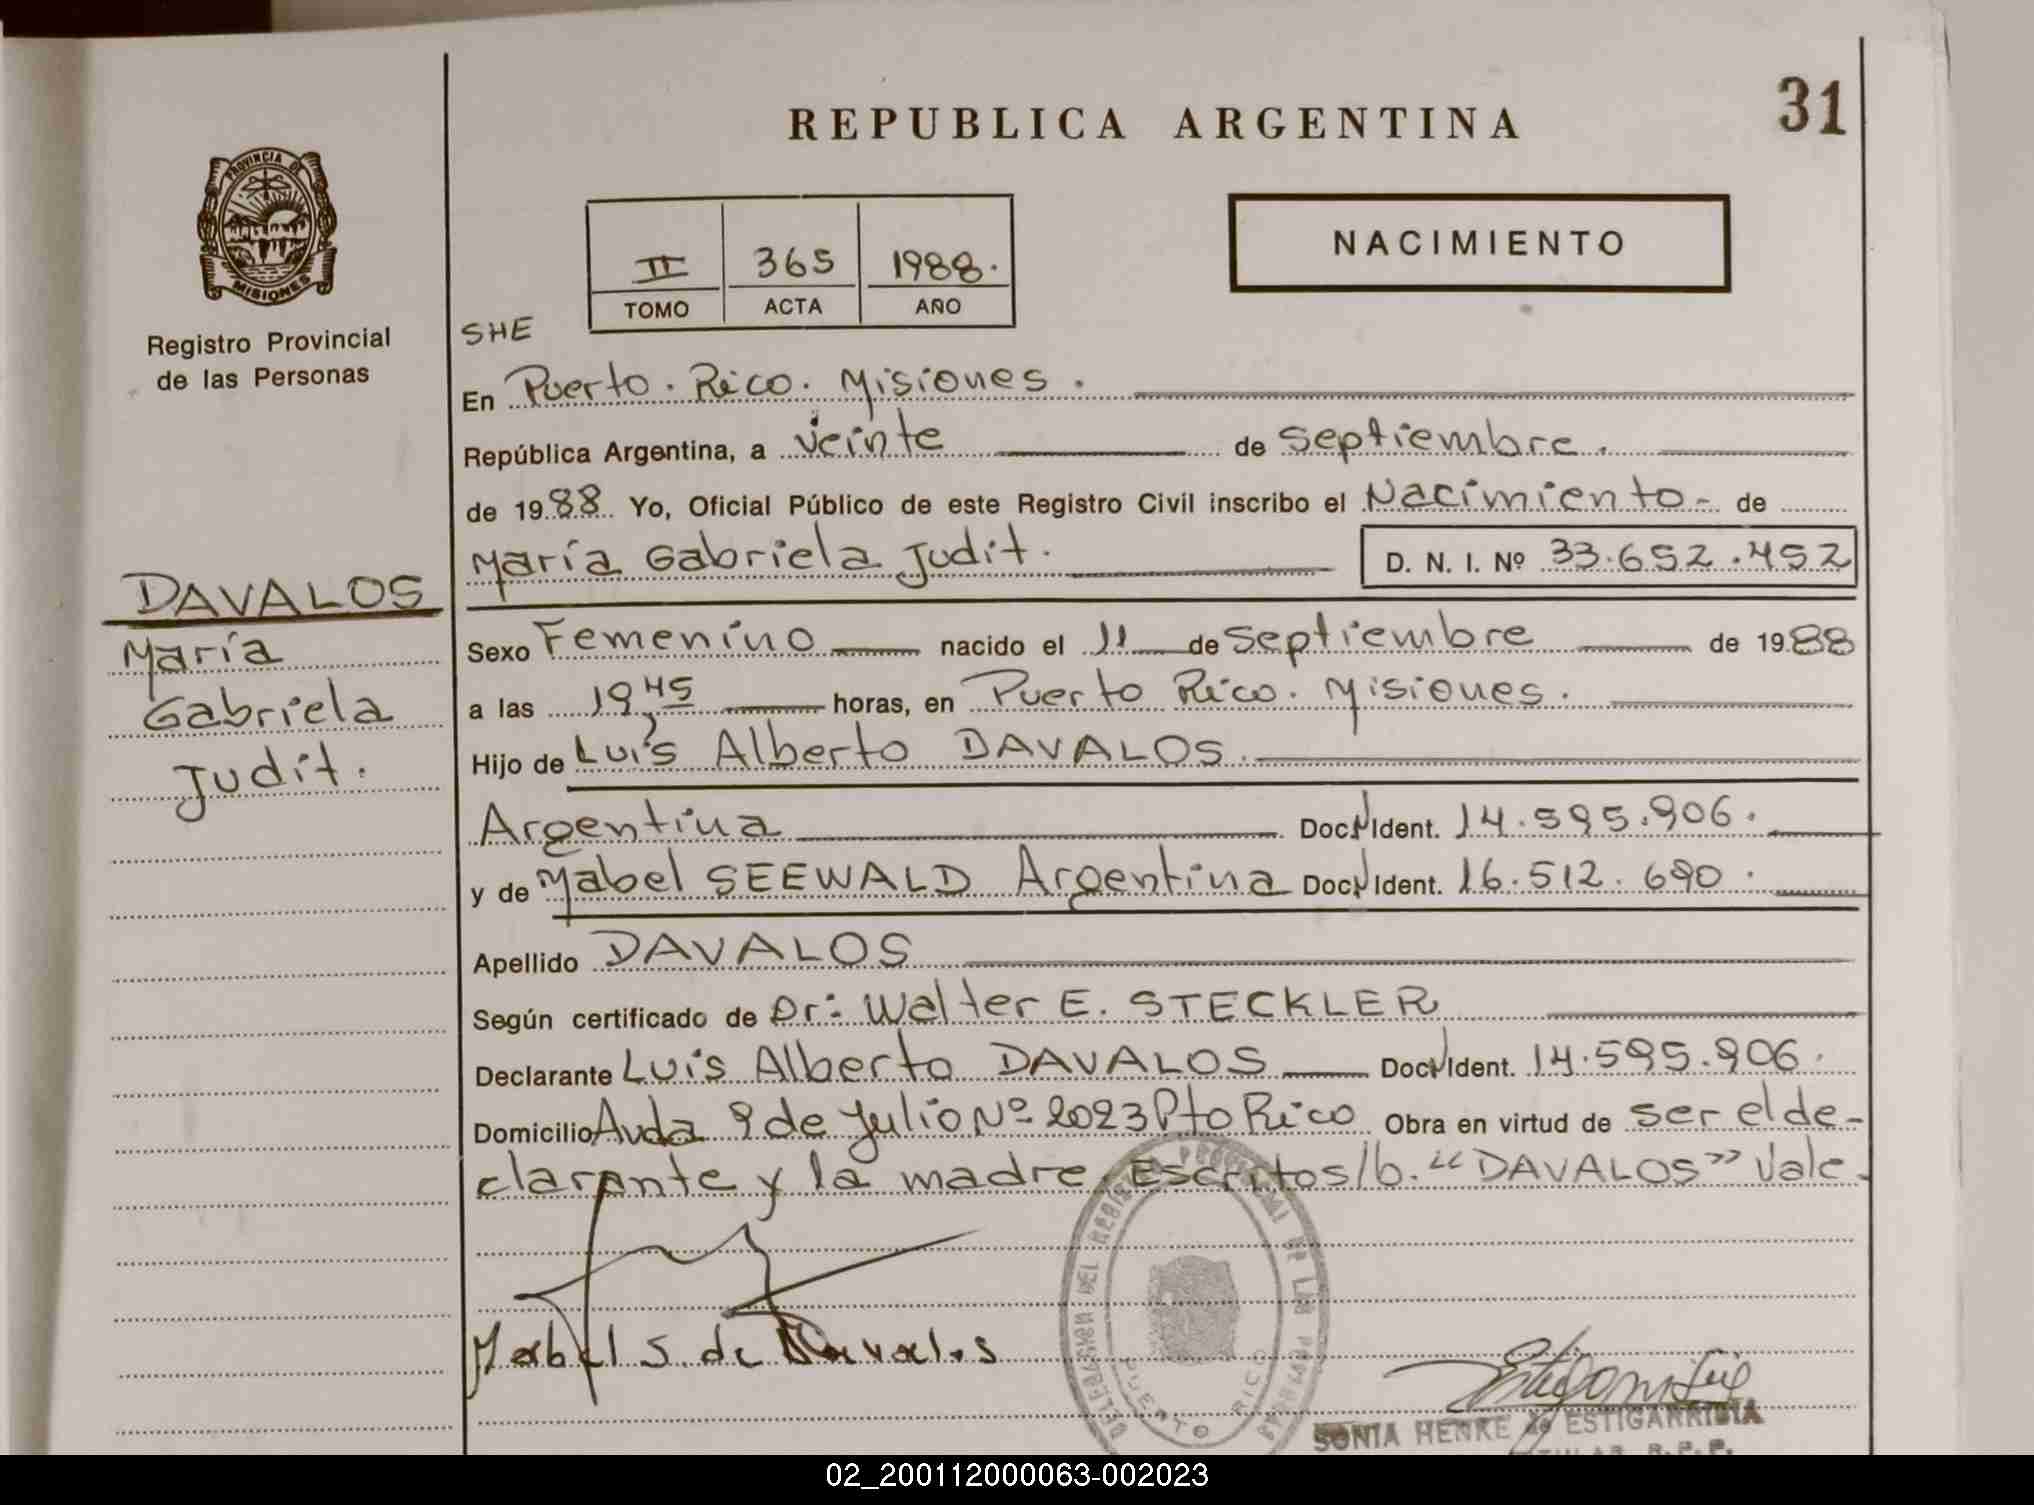 REPUBLICA ARGENTINA
31
PROVINCIA DE
MISIONES
Registro Provincial
de las Personas
NACIMIENTO
II 365 1988.
TOMO ACTA AÑO
SHE
En Puerto. Rico. Misiones.
República Argentina, a veinte de Septiembre.
de 1988 Yo, Oficial Público de este Registro Civil inscribo el Nacimiento- de
María Gabriela Judit. D. N. I. Nº 33.652.452
DAVALOS
María
Gabriela
Judit.
Sexo Femenino nacido el 11 de Septiembre de 1988
a las 19,45 horas, en Puerto Rico. Misiones.
Hijo de Luis Alberto DAVALOS.
Argentina Doc. Ident. 14.595.906.
y de Mabel SEEWALD Argentina Doc. Ident. 16.512.690.
Apellido DAVALOS
Según certificado de Dr: Walter E. STECKLER
Declarante Luis Alberto DAVALOS Doc. Ident. 14.595.906.
Domicilio Avda 9 de Julio Nº 2023 Pto Rico Obra en virtud de ser el de-
clarante y la madre, Escritos/b. "DAVALOS" Vale-
Mabel S. de Davalos
DELEGACION DEL REGISTRO PROVINCIAL DE LAS PERSONAS
PUERTO RICO
SONIA HENKE de ESTIGARRIBIA
TITULAR R.P.P.
02_200112000063-002023